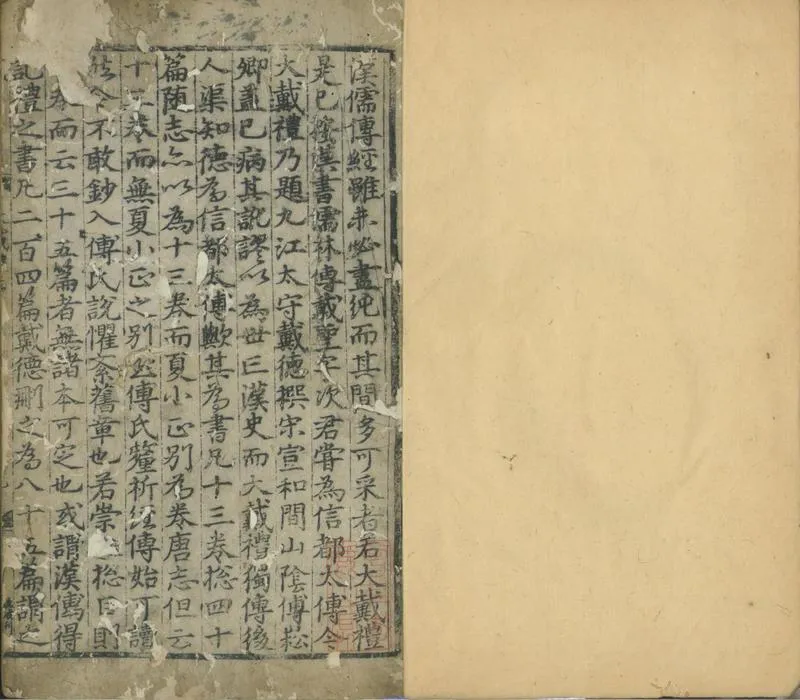 漢儒傳經雖未必盡純而其間多可采者若大戴禮
是已漢書儒林傳戴聖字次君嘗為信都太傅今
大戴禮乃題九江太守戴德撰宋宣和間山陰傅崧
卿盖已病其訛謬以為世亡漢史而大戴禮獨傳後
人渠知德為信都太傅歟其為書凡十三卷捴四十
篇随志亦以為十三卷而夏小正别為卷唐志但云
十三卷而無夏小正之别至傅氏釐析經傳始可讀
然今不敢鈔入傅氏說懼紊舊章也若崇捴目則
卷而云三十五篇者無諸本可定也或謂漢儒得
記禮之書凡二百四篇戴德刪之為八十五篇謂之